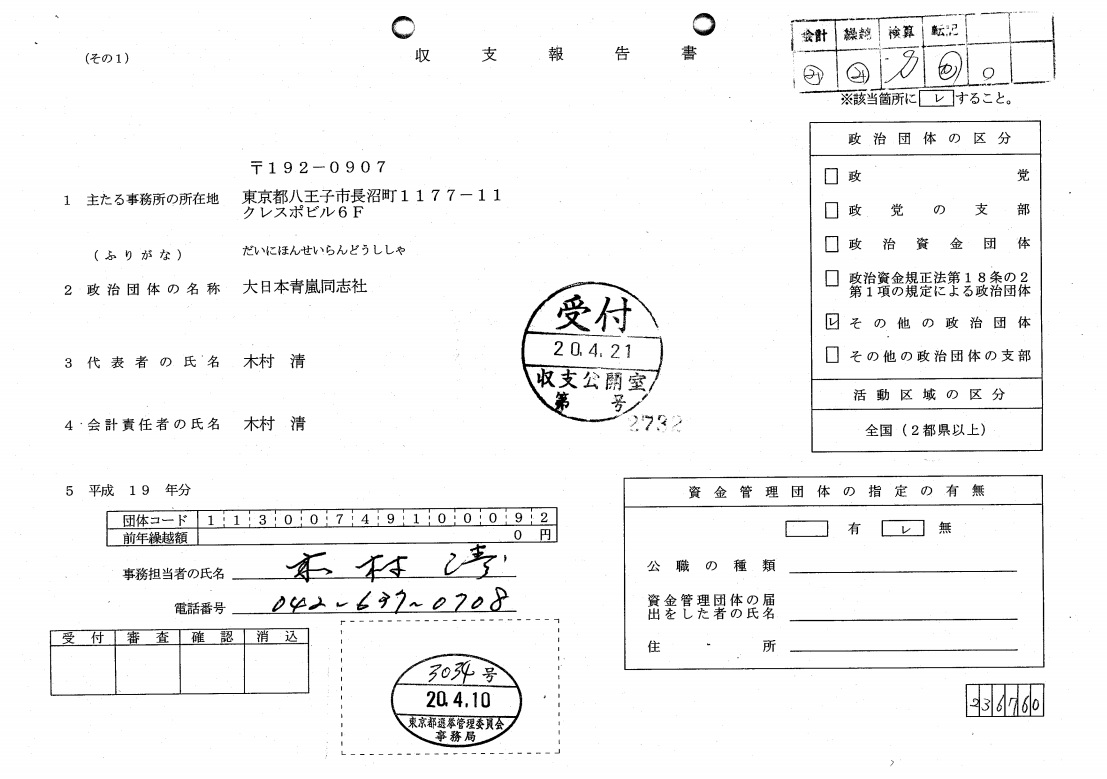 (その1)
収支報告書
会計 繰越 検算 転記
※該当箇所に レ すること。
〒192-0907
1 主たる事務所の所在地 東京都八王子市長沼町1177-11
クレスポビル6F
(ふりがな) だいにほんせいらんどうししゃ
2 政治団体の名称 大日本青嵐同志社
3 代表者の氏名 木村 清
4 会計責任者の氏名 木村 清
5 平成 19 年分
団体コード 113007491000092
前年繰越額 0 円
事務担当者の氏名 木村 清
電話番号 042-637-0708
受付 審査 確認 消込
受付
20.4.21
収支公開室
第 号
2732
3034号
20.4.10
東京都選挙管理委員会
事務局
政治団体の区分
政党
政党の支部
政治資金団体
政治資金規正法第18条の2
第1項の規定による政治団体
レ その他の政治団体
その他の政治団体の支部
活動区域の区分
全国(2都県以上)
資金管理団体の指定の有無
有 レ 無
公職の種類
資金管理団体の届
出をした者の氏名
住所
236760